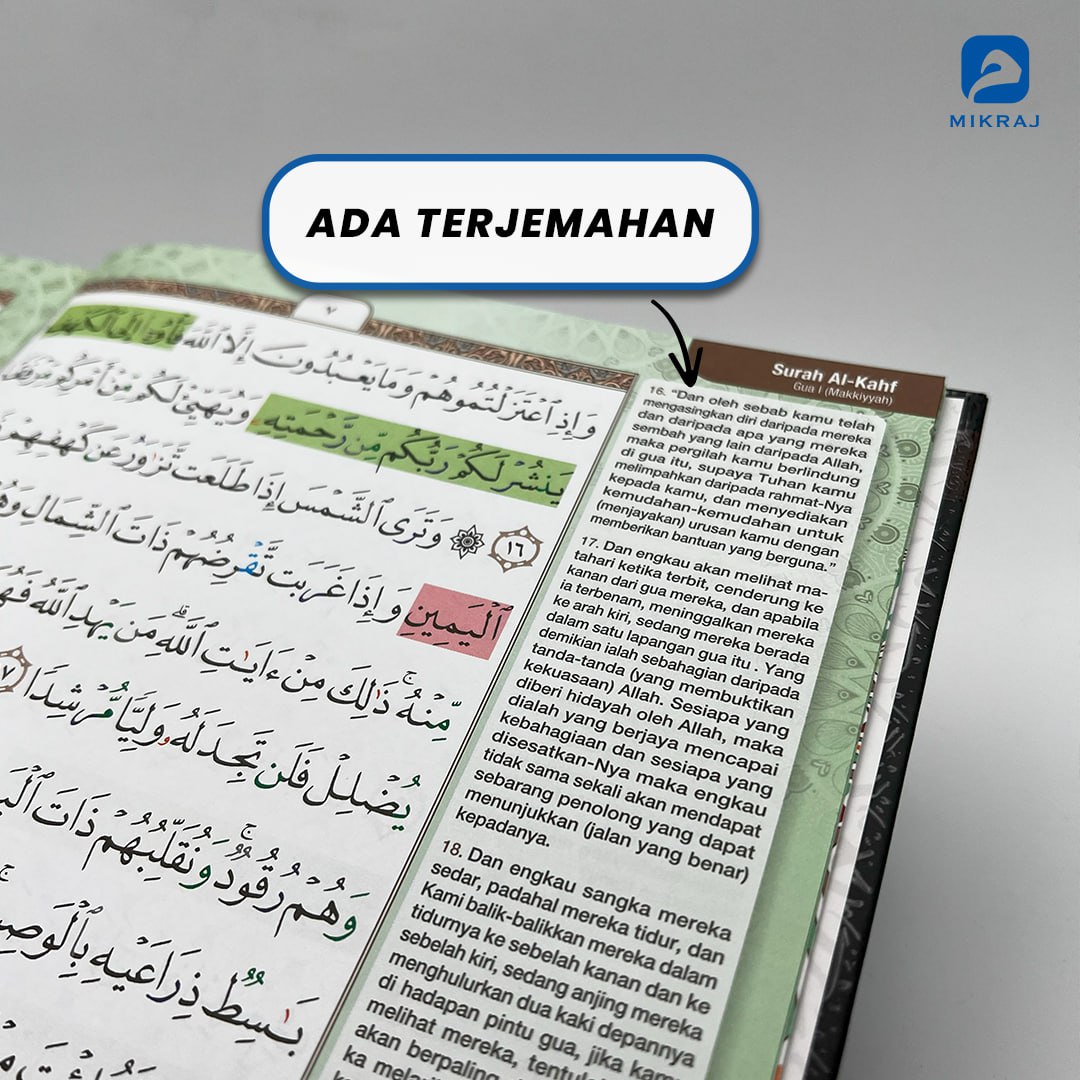 MIKRAJ
ADA TERJEMAHAN
٧
Surah Al-Kahf
Gua | (Makkiyyah)
وَإِذِ ٱعْتَزَلْتُمُوهُمْ وَمَا يَعْبُدُونَ إِلَّا ٱللَّهَ فَأْوُۥٓا۟ إِلَى ٱلْكَهْفِ
يَنشُرْ لَكُمْ رَبُّكُم مِّن رَّحْمَتِهِۦ وَيُهَيِّئْ لَكُم مِّنْ أَمْرِكُم مِّرْفَقًا
١٦ ۞ وَتَرَى ٱلشَّمْسَ إِذَا طَلَعَت تَّزَٰوَرُ عَن كَهْفِهِمْ
ٱلْيَمِينِ وَإِذَا غَرَبَت تَّقْرِضُهُمْ ذَاتَ ٱلشِّمَالِ وَهُمْ
مِّنْهُ ۚ ذَٰلِكَ مِنْ ءَايَٰتِ ٱللَّهِ ۗ مَن يَهْدِ ٱللَّهُ فَهُوَ
يُضْلِلْ فَلَن تَجِدَ لَهُۥ وَلِيًّا مُّرْشِدًا
وَهُمْ رُقُودٌ ۚ وَنُقَلِّبُهُمْ ذَاتَ
بَٰسِطٌ ذِرَاعَيْهِ بِٱلْوَصِيدِ
16. “Dan oleh sebab kamu telah
mengasingkan diri daripada mereka
dan daripada apa yang mereka
sembah yang lain daripada Allah,
maka pergilah kamu berlindung
di gua itu, supaya Tuhan kamu
melimpahkan daripada rahmat-Nya
kepada kamu, dan menyediakan
kemudahan-kemudahan untuk
(menjayakan) urusan kamu dengan
memberikan bantuan yang berguna.”
17. Dan engkau akan melihat ma-
tahari ketika terbit, cenderung ke
kanan dari gua mereka, dan apabila
ia terbenam, meninggalkan mereka
ke arah kiri, sedang mereka berada
dalam satu lapangan gua itu . Yang
demikian ialah sebahagian daripada
tanda-tanda (yang membuktikan
kekuasaan) Allah. Sesiapa yang
diberi hidayah oleh Allah, maka
dialah yang berjaya mencapai
kebahagiaan dan sesiapa yang
disesatkan-Nya maka engkau
tidak sama sekali akan mendapat
sebarang penolong yang dapat
menunjukkan (jalan yang benar)
kepadanya.
18. Dan engkau sangka mereka
sedar, padahal mereka tidur, dan
Kami balik-balikkan mereka dalam
tidurnya ke sebelah kanan dan ke
sebelah kiri, sedang anjing mereka
menghulurkan dua kaki depannya
di hadapan pintu gua, jika kamu
melihat mereka,
akan berpaling